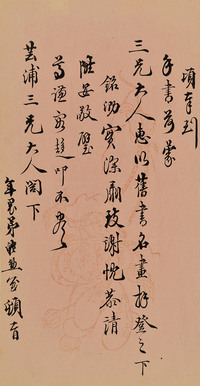 頃奉到
手書荷蒙
三兄大人惠以舊書名畫拜登之下
銘泐實深肅玆謝悃恭請
陞安敬璧
尊謙容趨叩不盡
芸浦三兄大人閣下
年愚弟 頓首